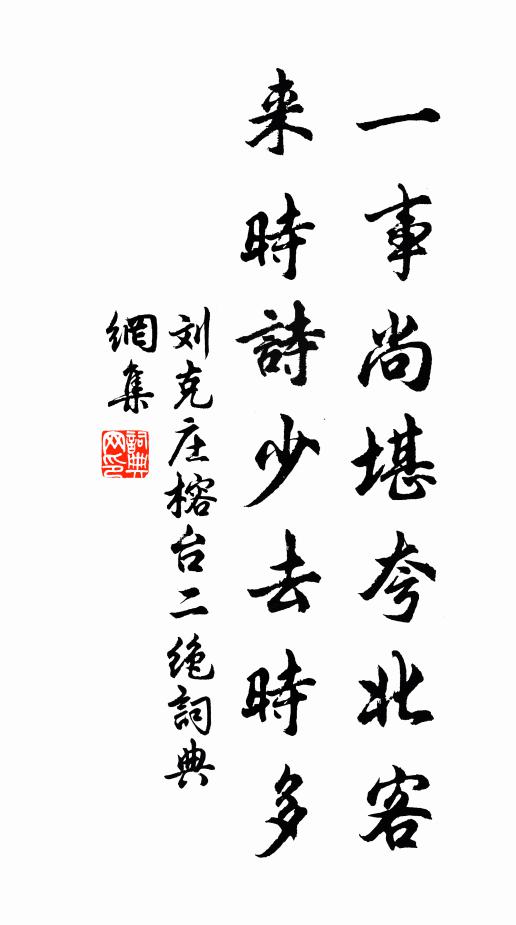 一事尚堪夸北客
来時詩少去時多
刘克庄榕台二绝詞典
網集
詞典
网印